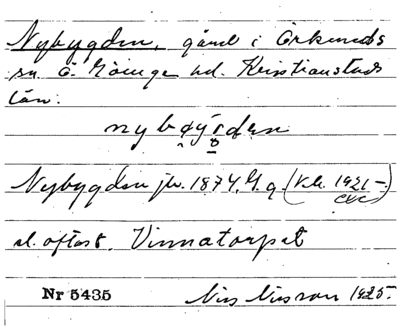 Nybygden, gård i Örkeneds
sn. Ö. Göinge hd. Kristianstads
län.
Nybygden jb. 1874. G. q. (K.b. 1921–
el. oftast. Vinnatorpet
Nr 5435 Nils Nilsson 1925.